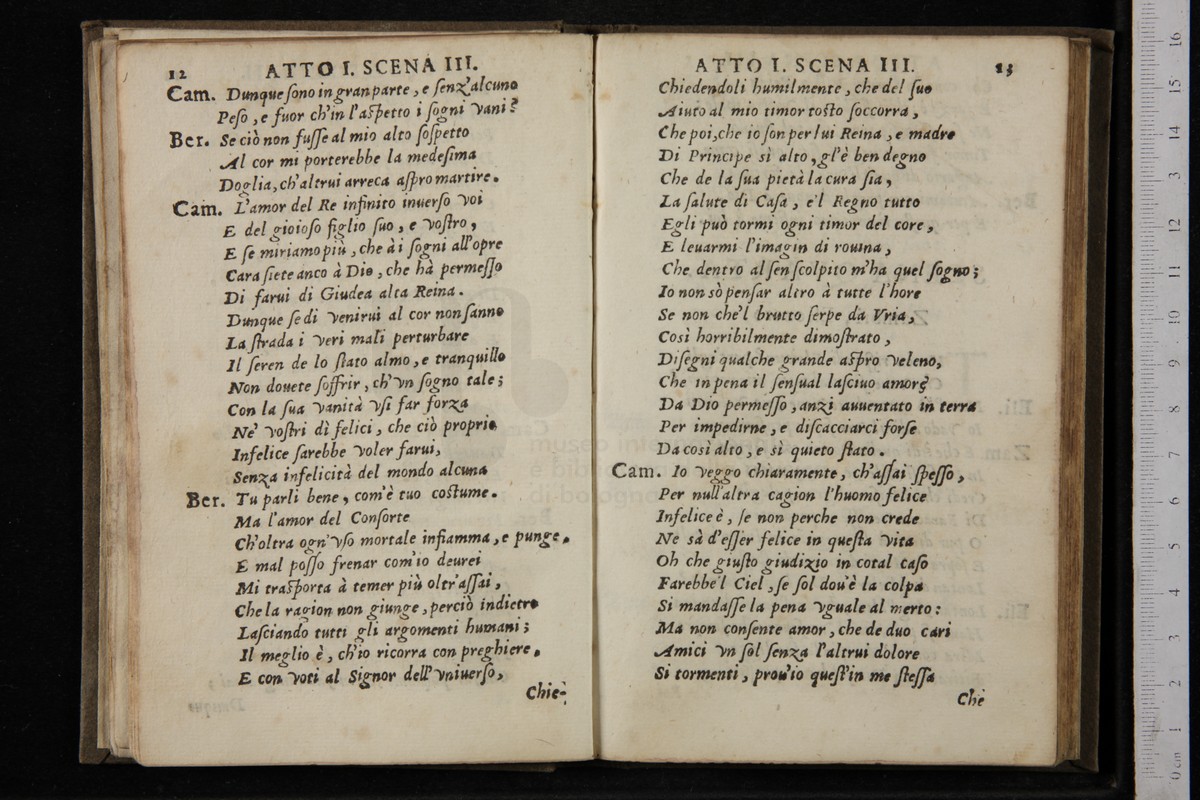 12 ATTO I. SCENA III.
Cam. Dunque ſono in gran parte, e ſenz'alcuno
Peſo, e fuor ch'in l'aſpetto i ſogni vani?
Ber. Se ciò non fuſſe al mio alto ſoſpetto
Al cor mi porterebbe la medeſima
Doglia, ch'altrui arreca aſpro martire.
Cam. L'amor del Re infinito inuerſo voi
E del gioioſo figlio ſuo, e voſtro,
E ſe miriamo più, che ài ſogni all'opre
Cara ſiete anco à Dio, che hà permeſſo
Di farui di Giudea alta Reina.
Dunque ſe di venirui al cor non ſanno
La ſtrada i veri mali perturbare
Il ſeren de lo ſtato almo, e tranquillo
Non douete ſoffrir, ch'vn ſogno tale;
Con la ſua vanità vſi far forza
Ne' voſtri dì felici, che ciò proprio
Infelice ſarebbe voler farui,
Senza infelicità del mondo alcuna
Ber. Tu parli bene, com'è tuo coſtume.
Ma l'amor del Conſorte
Ch'oltra ogn'vſo mortale infiamma, e punge.
E mal poſſo frenar com'io deurei
Mi traſporta à temer più oltr'aſſai,
Che la ragion non giunge, perciò indietro
Laſciando tutti gli argomenti humani;
Il meglio è, ch'io ricorra con preghiere.
E con voti al Signor dell'vniuerſo,
Chie-
ATTO I. SCENA III. 13
Chiedendoli humilmente, che del ſuo
Aiuto al mio timor toſto ſoccorra,
Che poi, che io ſon per lui Reina, e madre
Di Principe sì alto, gl'è ben degno
Che de la ſua pietà la cura ſia,
La ſalute di Caſa, e'l Regno tutto
Egli può tormi ogni timor del core,
E leuarmi l'imagin di rouina,
Che dentro al ſen ſcolpito m'ha quel ſogno;
Io non sò penſar altro à tutte l'hore
Se non che'l brutto ſerpe da Vria,
Così horribilmente dimoſtrato,
Diſegni qualche grande aſpro veleno,
Che in pena il ſenſual laſciuo amore?
Da Dio permeſſo, anzi auuentato in terra
Per impedirne, e diſcacciarci forſe
Da così alto, e sì quieto ſtato.
Cam. Io veggo chiaramente, ch'aſſai ſpeſſo,
Per null'altra cagion l'huomo felice
Infelice è, ſe non perche non crede
Ne sà d'eſſer felice in queſta vita
Oh che giuſto giudizio in cotal caſo
Farebbe'l Ciel, ſe ſol dou'è la colpa
Si mandaſſe la pena vguale al merto:
Ma non conſente amor, che de duo cari
Amici vn ſol ſenza l'altrui dolore
Si tormenti, prou'io queſt'in me ſteſſa
Chè